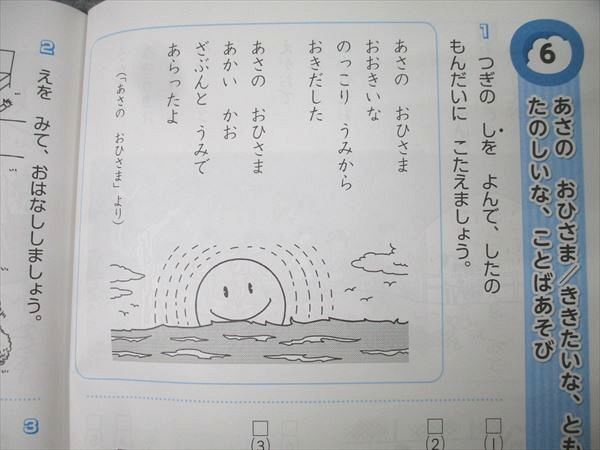 6
あさの　おひさま／ききたいな、とも
たのしいな、ことばあそび
1 つぎの　しを　よんで、したの
もんだいに　こたえましょう。
あさの　おひさま
おおきいな
のっこり　うみから
おきだした
あさの　おひさま
あかい　かお
ざぶんと　うみで
あらったよ
（「あさの　おひさま」より）
(1)
(2)
(3)
2 えを　みて、おはなししましょう。
3